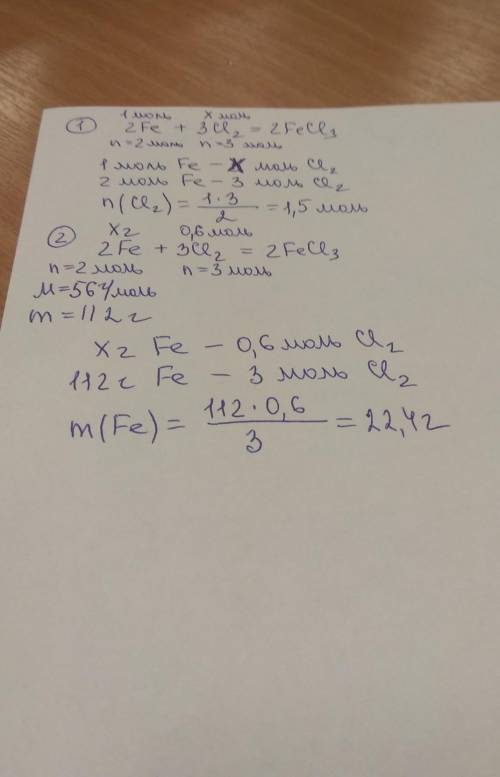 1 моль х моль
① 2Fe + 3Cl₂ = 2FeCl₃
n=2 моль n=3 моль
1 моль Fe – х моль Cl₂
2 моль Fe – 3 моль Cl₂
n(Cl₂) = 1·3 / 2 = 1,5 моль
② хг 0,6 моль
2Fe + 3Cl₂ = 2FeCl₃
n=2 моль n=3 моль
М=56 г/моль
m=112 г
хг Fe – 0,6 моль Cl₂
112 г Fe – 3 моль Cl₂
m(Fe) = 112·0,6 / 3 = 22,4 г